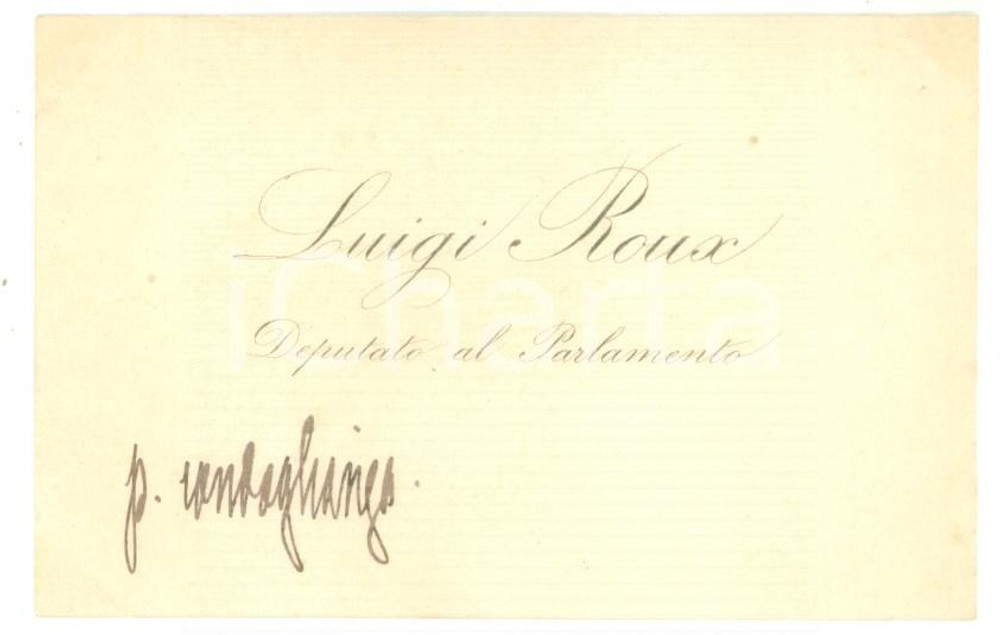 Luigi Roux
iCharta
Deputato al Parlamento
p. condoglianza.